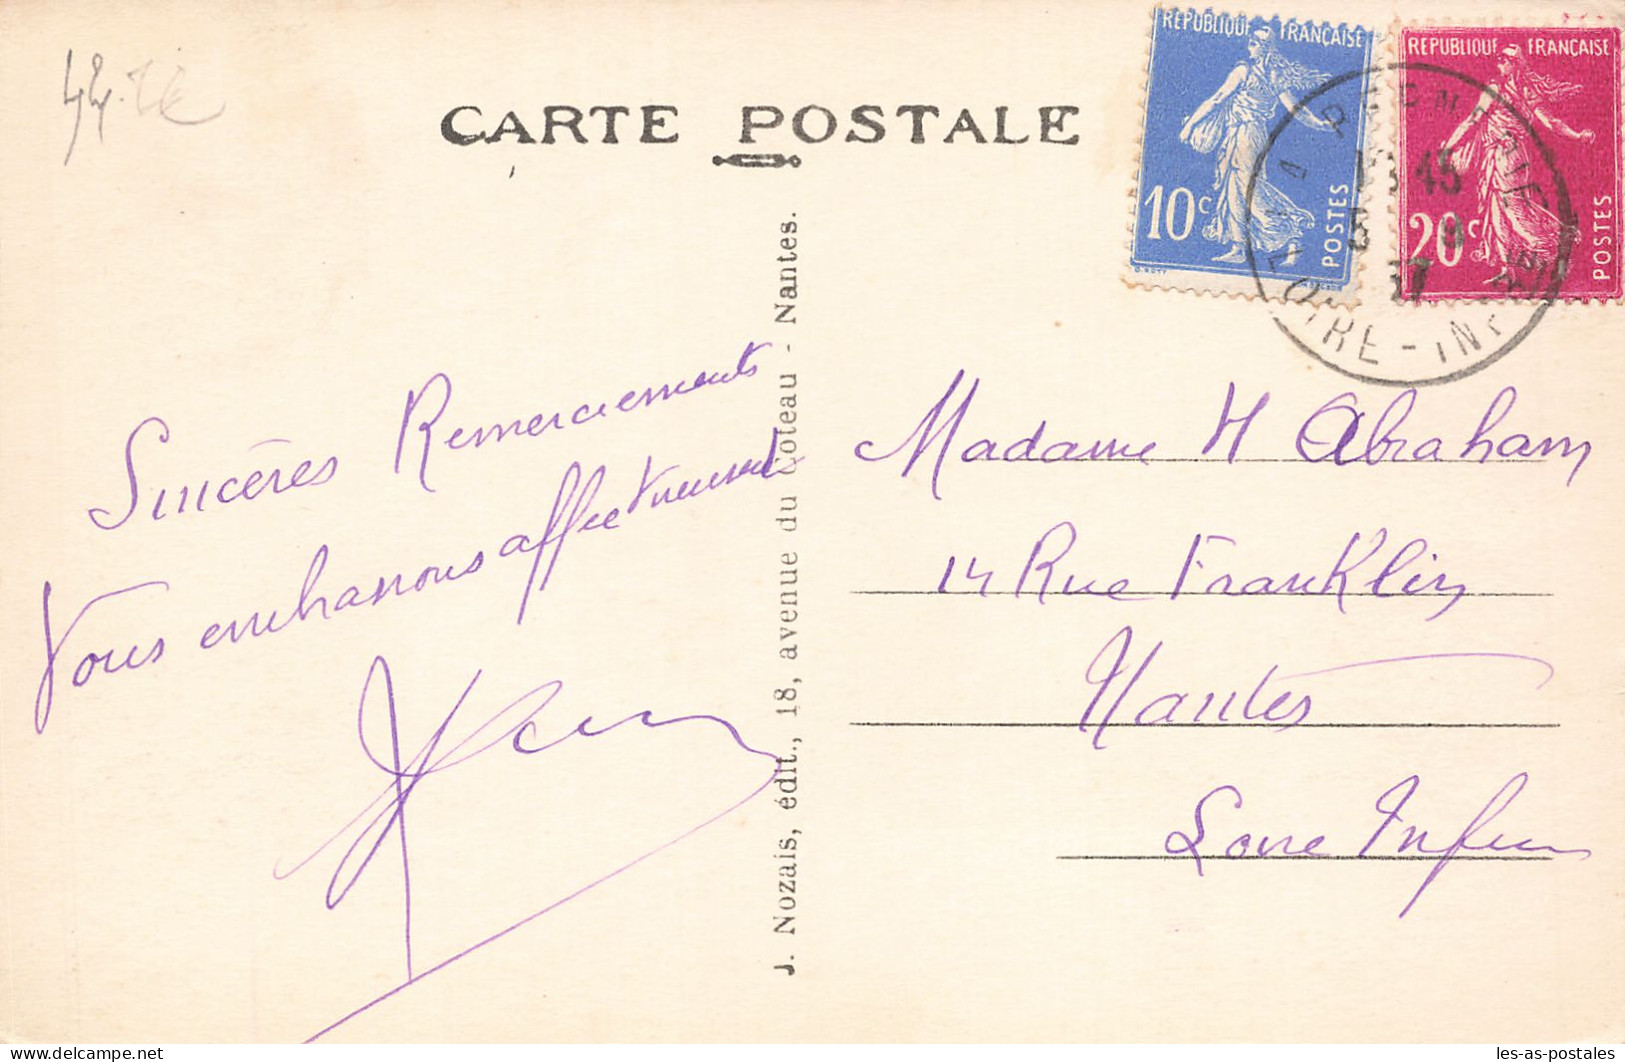 44
CARTE POSTALE
REPUBLIQUE FRANÇAISE
10c
POSTES
REPUBLIQUE FRANÇAISE
20c
POSTES
LOIRE-INFRE
45
5 9
37
Sincères Remerciements
Vous embrassons affectueusement
J. Nozais, édit., 18, avenue du Coteau - Nantes.
Madame H Abraham
14 Rue Franklin
Nantes
Loire Infre
les-as-postales